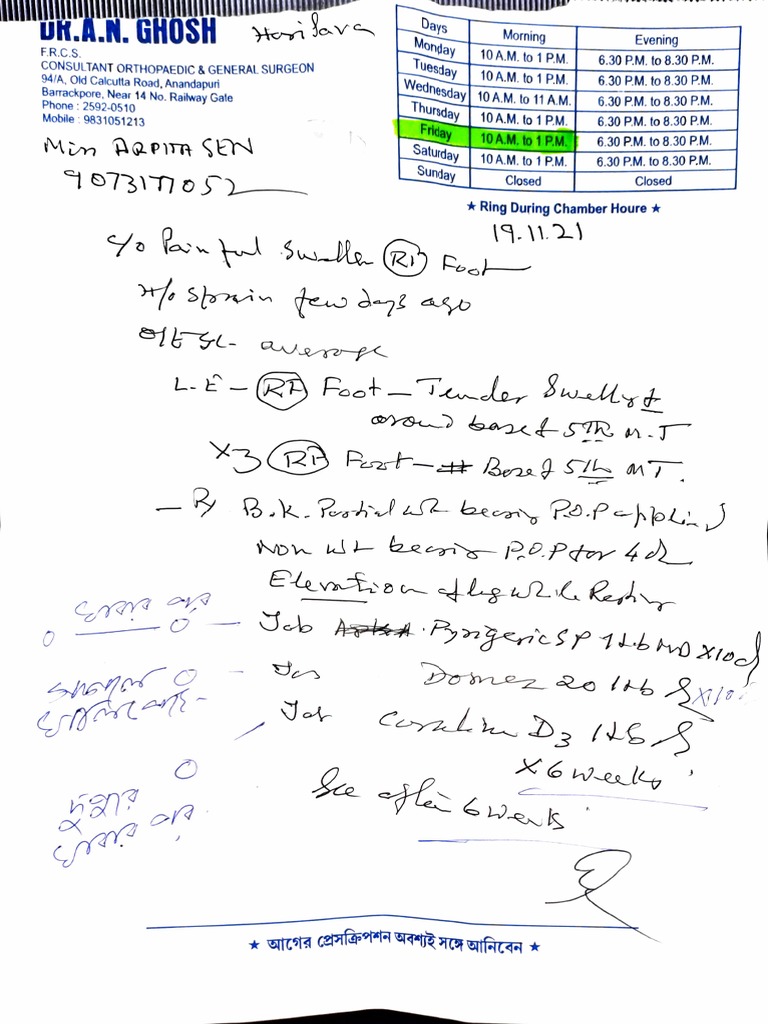 DR.A.N. GHOSH
F.R.C.S.
CONSULTANT ORTHOPAEDIC & GENERAL SURGEON
94/A, Old Calcutta Road, Anandapuri
Barrackpore, Near 14 No. Railway Gate
Phone : 2592-0510
Mobile : 9831051213
Days Morning Evening
Monday 10 A.M. to 1 P.M. 6.30 P.M. to 8.30 P.M.
Tuesday 10 A.M. to 1 P.M. 6.30 P.M. to 8.30 P.M.
Wednesday 10 A.M. to 11 A.M. 6.30 P.M. to 8.30 P.M.
Thursday 10 A.M. to 1 P.M. 6.30 P.M. to 8.30 P.M.
Friday 10 A.M. to 1 P.M. 6.30 P.M. to 8.30 P.M.
Saturday 10 A.M. to 1 P.M. 6.30 P.M. to 8.30 P.M.
Sunday Closed Closed
★ Ring During Chamber Houre ★
Miss ARPITA SEN
19.11.21
c/o Painful Swelling RT Foot
H/o Strain few days ago
O/E GC- average
L.E - RT Foot - Tender Swelling +
around base of 5th M.T
RT Foot - # Base of 5th MT.
- Rx B.K. Partial wt bearing P.O.P applied
Non wt bearing P.O.P for
Elevation of leg while Resting
খাবার পর
Tab SP 1 tab
Tab 20 1 tab
খালিপেটে
Tab D3 1 tab
X 6 weeks
দুপুরে
খাবার পর
See after 6 weeks
★ আগের প্রেসক্রিপশন অবশ্যই সঙ্গে আনিবেন ★